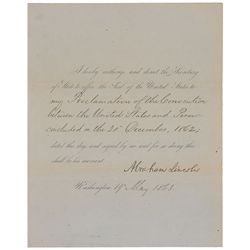 I hereby authorize and direct the Secretary
of State to affix the Seal of the United States to
my Proclamation of the Convention
between the United States and Peru
concluded on the 20th December, 1862,
dated this day and signed by me and for so doing this
shall be his warrant.
Abraham Lincoln
Washington 19 May 1863.